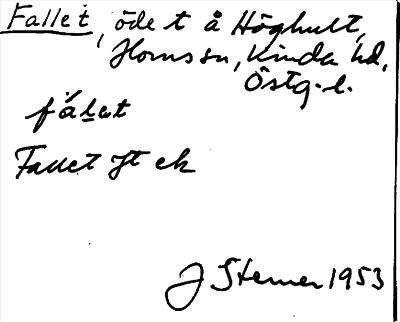 Fallet, öde t å Höghult,
Horns sn, Kinda hd,
Östg. l.
fálat
Fallet Jt ek
J Sterner 1953